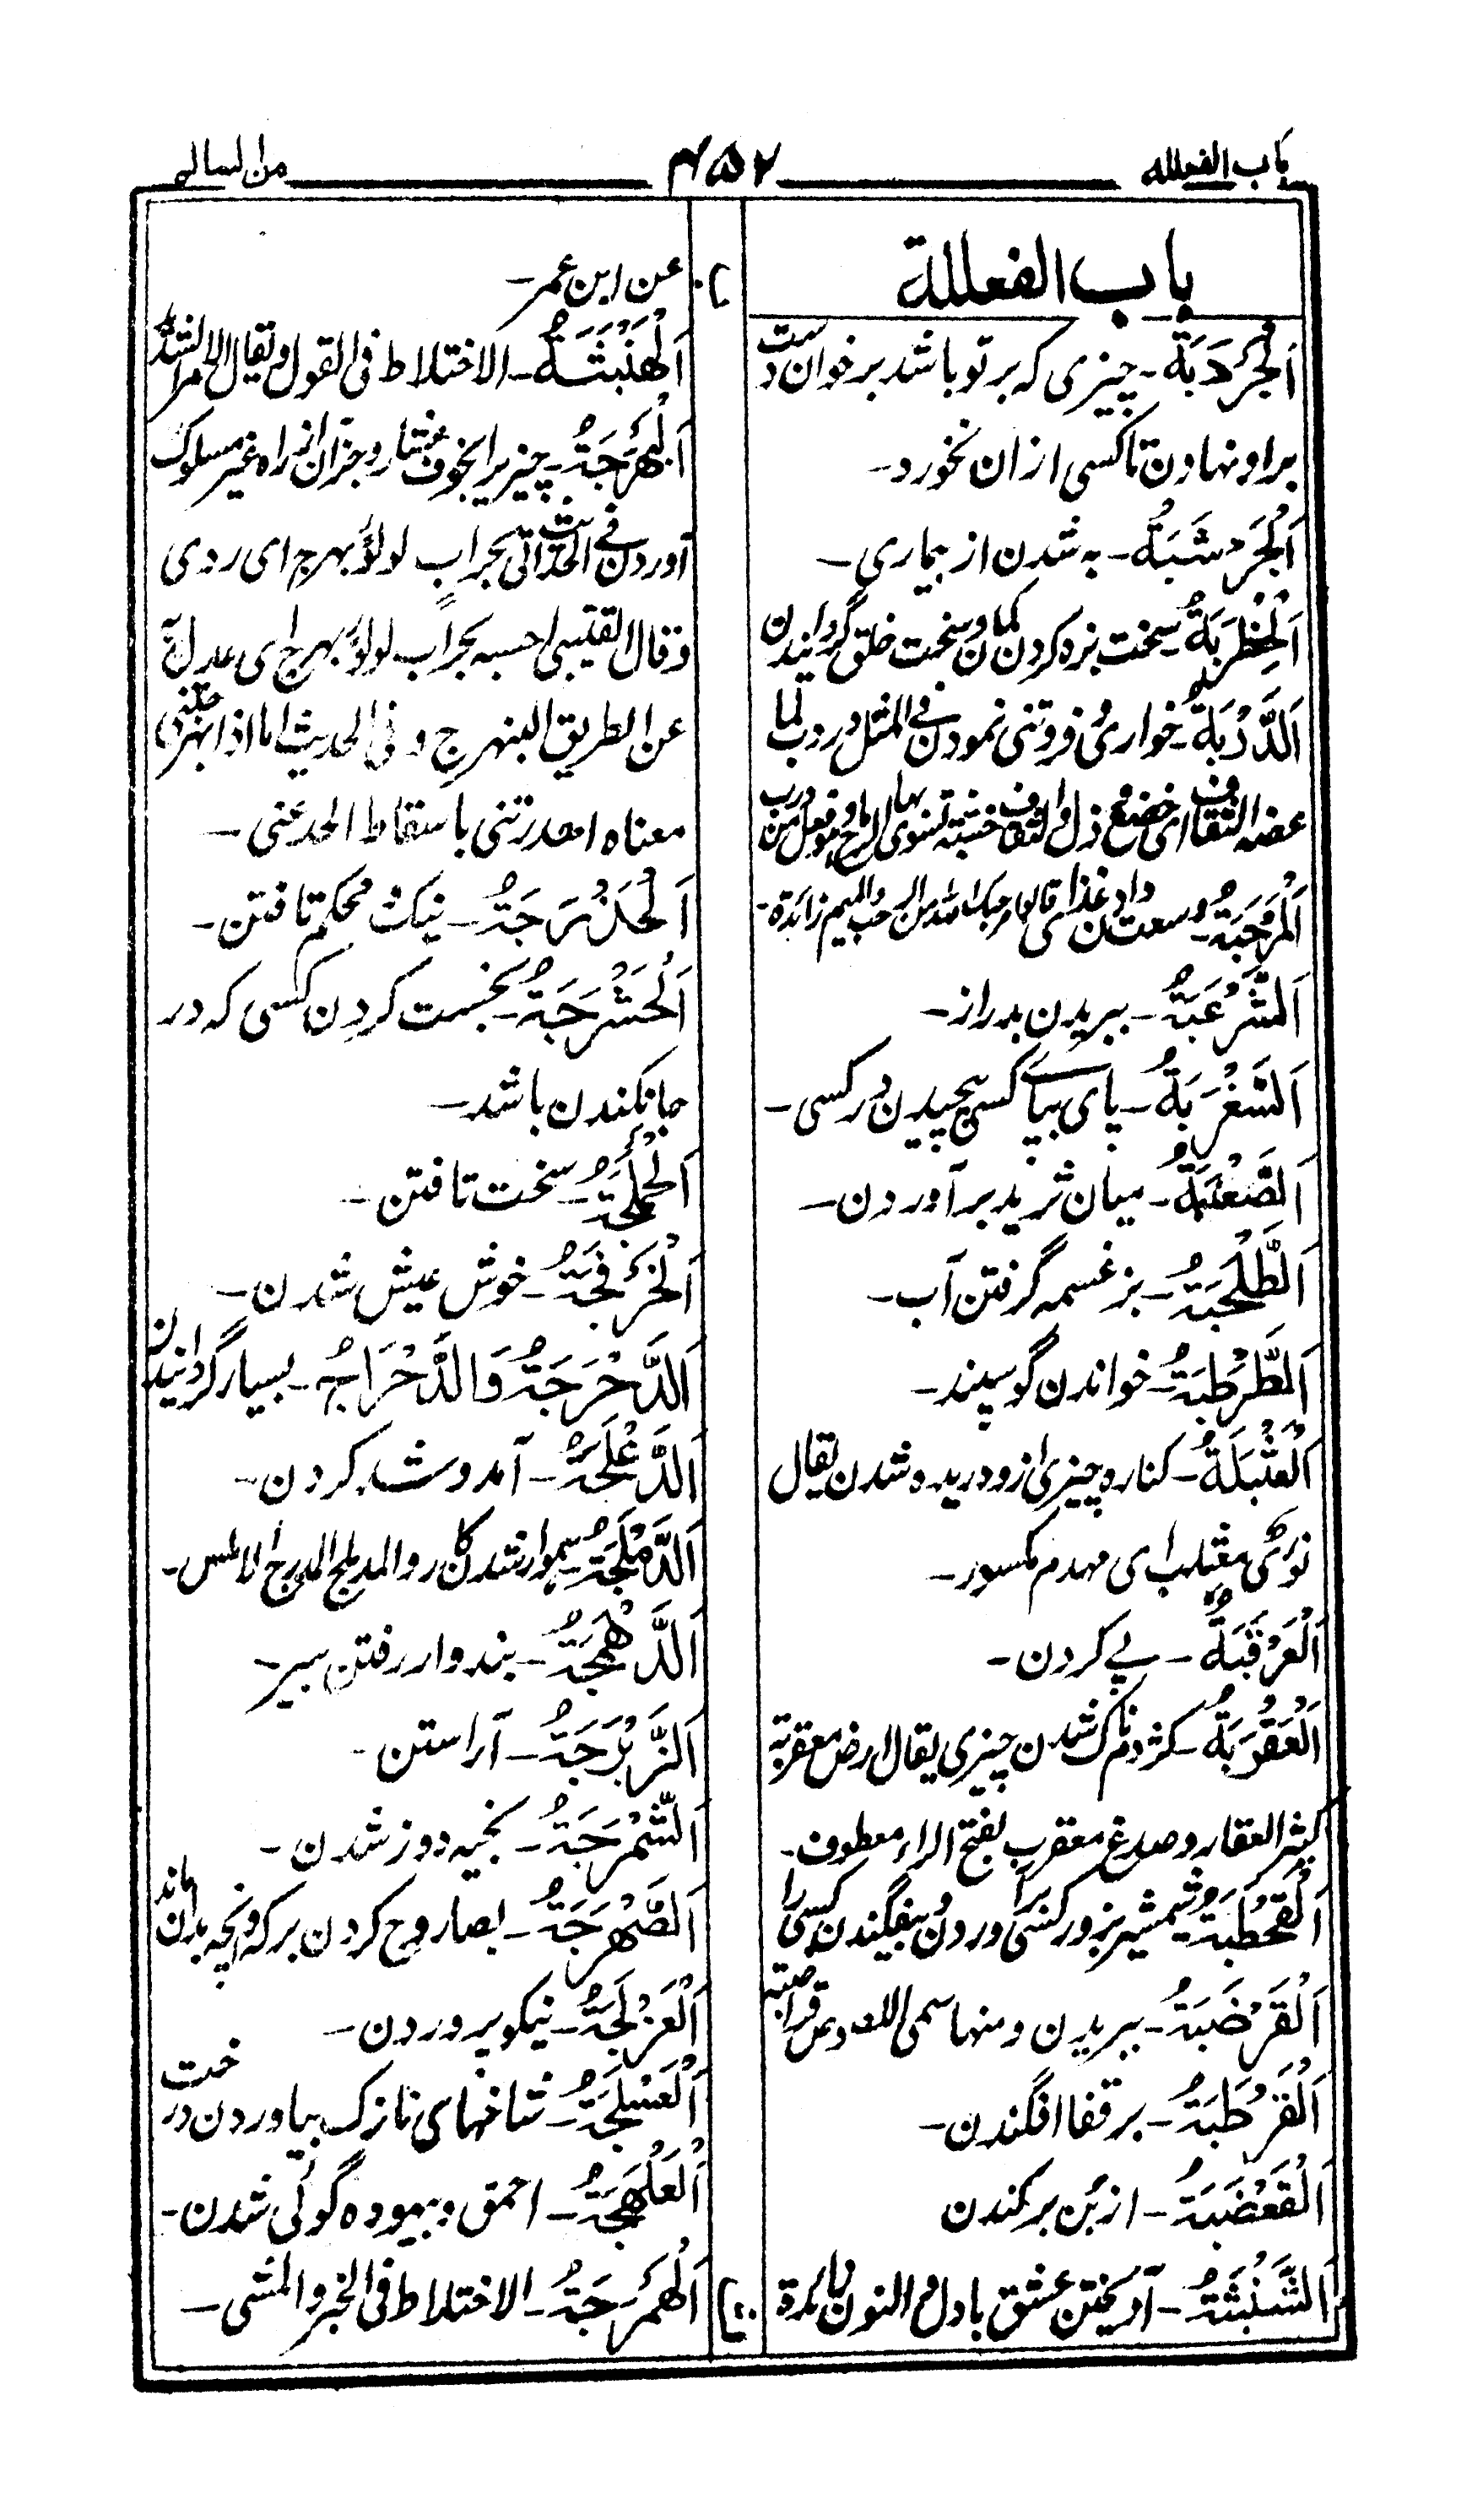 باب الفعللة
۴۵۲
من السالم
باب الفعللة
اَلْجَرْدَبَةُ۔ چیزی که بر تو باشد بر خوان دست
بر او نهادن تا کسی ازان نخورد۔
اَلْجَرْشَبَةُ۔ به شدن از بیماری۔
اَلْحَظْرَبَةُ۔ سخت بزه کردن کمان و سخت خلق گردانیدن
اَلدَّرْبَةُ۔ خواری و فروتنی نمودن فی المثل دردب لما
عضه الثقاف ای خضع و ذل و الثقاف خشبة تسوی بها الرماح
اَلْمَرْحَبَةُ۔ وسعت دادن
والمیم زائدة۔
اَلشَّرْعَبَةُ۔ ببریدن بدراز۔
اَلشَّغْزَبَةُ۔ پای بپای کسی پیچیدن در کسی۔
اَلصَّعْنَبَةُ۔ میان ثرید بر آوردن۔
اَلطَّحْلَبَةُ۔ بزغسمه گرفتن آب۔
اَلطَّرْطَبَةُ۔ خواندن گوسپند۔
اَلْعَثْلَبَةُ۔ کناره چیزی ازو دریده شدن یقال
نؤی مثعلب ای مهدم مکسور۔
اَلْعَرْقَبَةُ۔ پے کردن۔
اَلْعَقْرَبَةُ۔ کژدم ناک شدن چیزی یقال ارض معقربة
کثیر العقارب و صدغ معقرب بفتح الراء معطوف۔
اَلْقَحْطَبَةُ۔ شمشیر بزور کسی را آوردن و بیفگندن کسی را
اَلْقَرْضَبَةُ۔ ببریدن و منها سمی اللصوص قراضبة
اَلْقَرْطَبَةُ۔ بر قفا افگندن۔
اَلْقَعْضَبَةُ۔ از بُن بر کندن
اَلشَّنْبَثَةُ۔ آویختن عشق با دل و النون زائدة
عن ابن عمر۔
اَلْهَنْبَثَةُ۔ الاختلاط فی القول و یقال الامر الشدید
اَلْبَهْرَجَةُ۔ چیزیرا بجوف غیر مسلوک
آوردن فی الحدیث اتی بجراب لؤلؤ بهرج ای ردی
و قال القتیبی احسبه بجراب لؤلؤ بهرج ای عدل
عن الطریق البنهرج و فی الحدیث اما اذا بهرجتنی
معناه اهدرتنی باسقاط الحد عنی۔
اَلْحَدْرَجَةُ۔ نیک و محکم تافتن۔
اَلْحَشْرَجَةُ۔ بخست کردن کسی که در
جانکندن باشد۔
اَلْحَمْلَجَةُ۔ سخت تافتن۔
اَلْخَرْفَجَةُ۔ خوش عیش شدن۔
اَلدَّحْرَجَةُ وَالدَّحْرَاجُ۔ بسیار گردانیدن
اَلدَّغْلَجَةُ۔ آمد و شد کردن۔
اَلدَّمْلَجَةُ۔ هموار شدن کار و المدملج المدرج الاملس۔
اَلدَّهْمَجَةُ۔ بندوار رفتن سیر
اَلزَّبْرَجَةُ۔ آراستن۔
اَلشَّمْرَجَةُ۔ بخیه دوز شدن۔
اَلصَّهْرَجَةُ۔ بصاروج کردن برکه و آنچه بدان ماند
اَلْعَزْلَجَةُ۔ نیکو پروردن۔
اَلْعَسْلَجَةُ۔ شاخهای نازک بیاوردن درخت
اَلْعَلْهَجَةُ۔ احمق و بیهوده گوئی شدن۔
اَلْهَمْرَجَةُ۔ الاختلاط فی الخبر و المشی۔